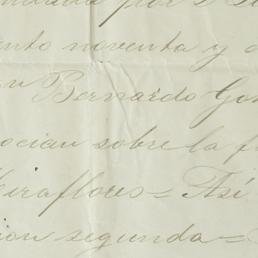 por
noventa y
Bernardo Gon
ocian sobre la f
Miraflores = Así
ion segunda =